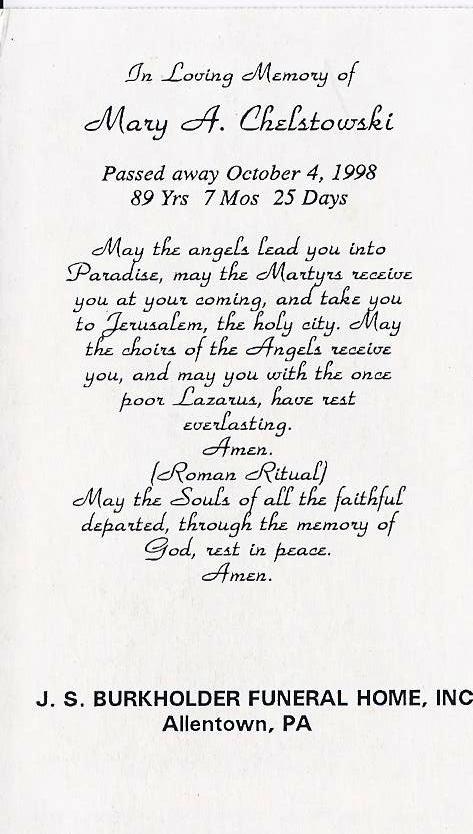 In Loving Memory of
Mary A. Chelstowski
Passed away October 4, 1998
89 Yrs 7 Mos 25 Days
May the angels lead you into
Paradise, may the Martyrs receive
you at your coming, and take you
to Jerusalem, the holy city. May
the choirs of the Angels receive
you, and may you with the once
poor Lazarus, have rest
everlasting.
Amen.
(Roman Ritual)
May the Souls of all the faithful
departed, through the memory of
God, rest in peace.
Amen.
J. S. BURKHOLDER FUNERAL HOME, INC
Allentown, PA